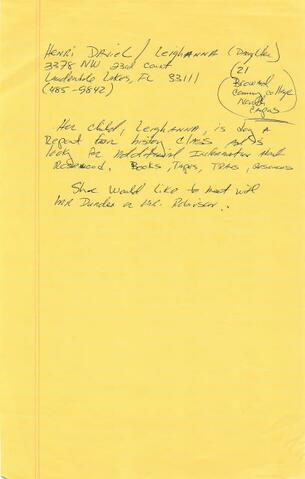 Henri Daviel / Leighanna (Daughter)
3378 NW 23rd Court
Lauderdale Lakes, FL 33111
(485-9842)
21
Broward
Community college
North
Campus
Her child, Leighanna, is doing a
Report for history class and is
looking for additional Information about
Rosewood. Books, Tapes, T
She would like to meet with
Mr Dunder or Mr. Robinson.